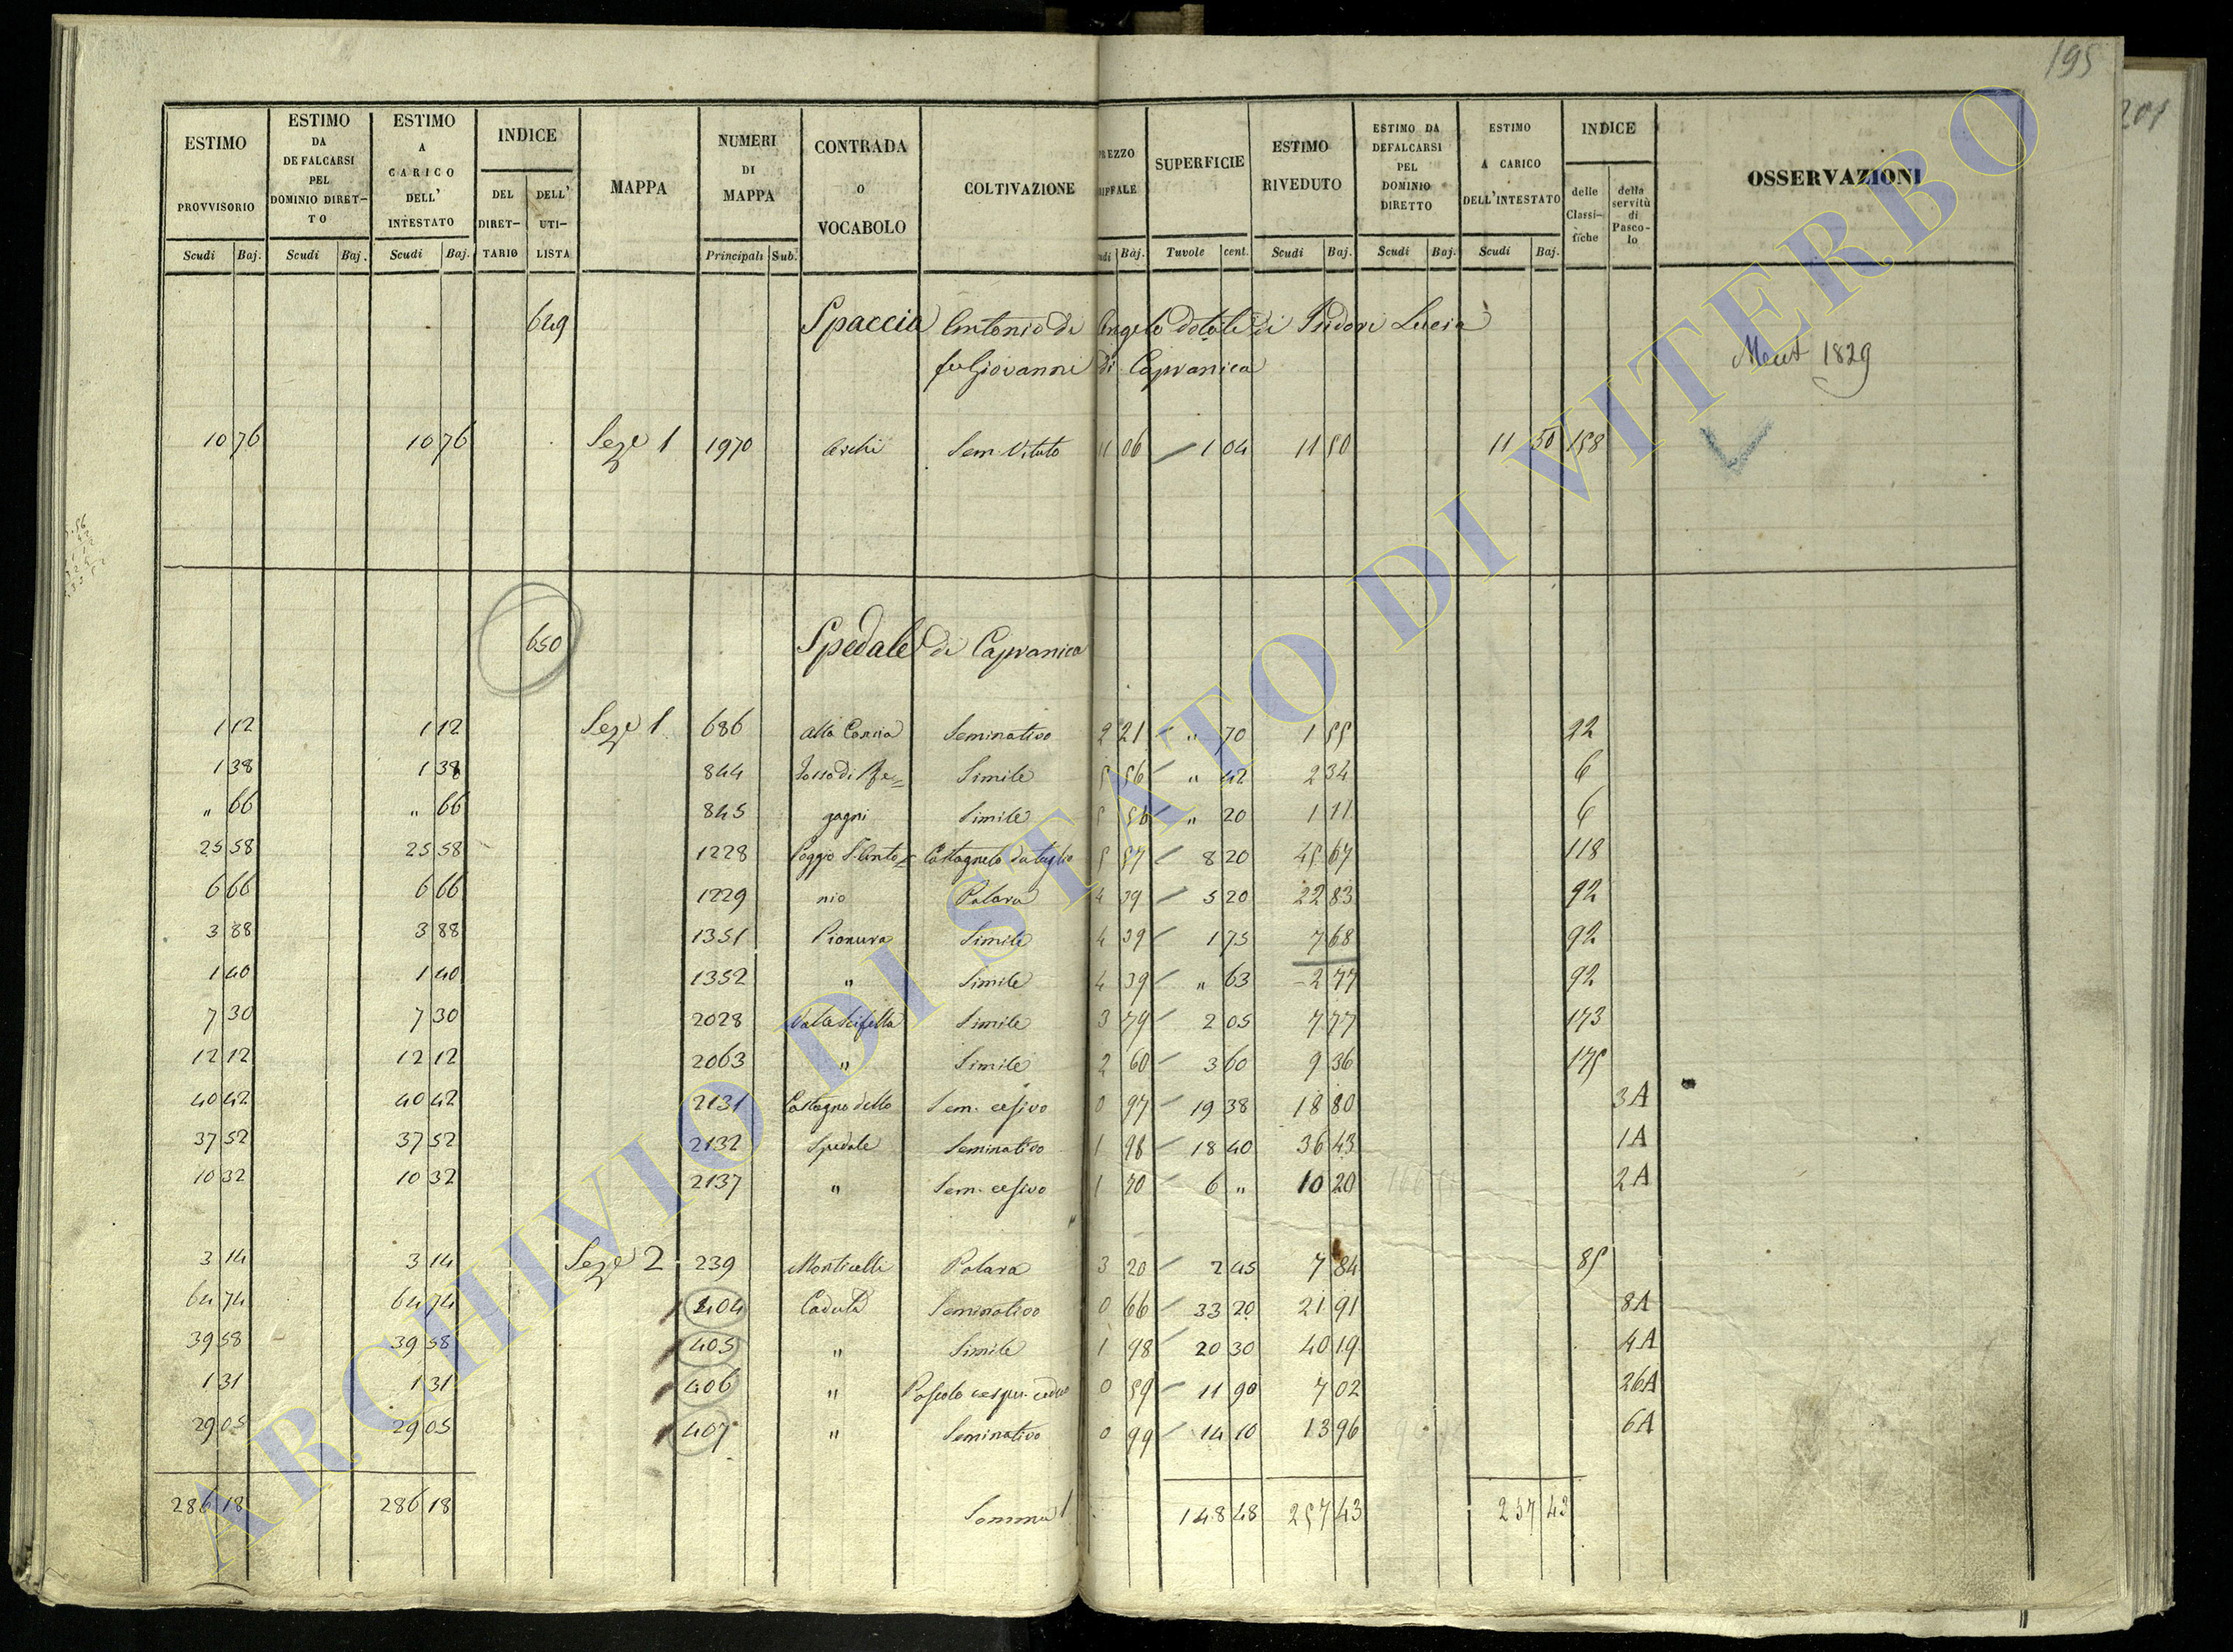 195
201
ESTIMO PROVVISORIO | ESTIMO DA DEFALCARSI PEL DOMINIO DIRETTO | ESTIMO A CARICO DELL' INTESTATO | INDICE DEL DIRETTARIO | DELL' UTILISTA | MAPPA | NUMERI DI MAPPA | CONTRADA O VOCABOLO | COLTIVAZIONE | SUPERFICIE | ESTIMO RIVEDUTO | ESTIMO DA DEFALCARSI PEL DOMINIO DIRETTO | ESTIMO A CARICO DELL'INTESTATO | INDICE delle Classifiche | della servitù di Pascolo | OSSERVAZIONI
Scudi Baj. Scudi Baj. Scudi Baj. Principali Sub. Baj. Tavole cent. Scudi Baj. Scudi Baj. Scudi Baj.
649 Spaccia Antonio di Angelo dotale di Lucia
fu Giovanni di Capranica
1829
10 76 10 76 Seze 1 1970 Sem. Vitato 11 06 1 04 11 50 11 50 158
650 Spedale di Capranica
1 12 1 12 Seze 1 686 alla Concia Seminativo 2 21 " 70 1 55 22
1 38 1 38 844 Simile 5 56 " 42 2 34 6
" 66 " 66 845 Simile 5 56 " 20 1 11 6
25 58 25 58 1228 Poggio S. Anto= Castagneto da taglio 5 57 8 20 45 67 118
6 66 6 66 1229 nio Palara 4 39 5 20 22 83 92
3 88 3 88 1351 Pianura Simile 4 39 1 75 7 68 92
1 40 1 40 1352 " Simile 4 39 " 63 2 77 92
7 30 7 30 2028 Simile 3 79 2 05 7 77 173
12 12 12 12 2063 " Simile 2 60 3 60 9 36 175
40 42 40 42 2131 Castagno dello Sem. cesivo 0 97 19 38 18 80 3A
37 52 37 52 2132 Spedale Seminativo 1 98 18 40 36 43 1A
10 32 10 32 2137 " Sem. cesivo 1 70 6 " 10 20 2A
3 14 3 14 Seze 2 239 Monticelli Palara 3 20 2 45 7 84 85
64 74 64 74 404 Caduta Seminativo 0 66 33 20 21 91 8A
39 58 39 58 405 " Simile 1 98 20 30 40 19 4A
1 31 1 31 406 " Pascolo 0 59 11 90 7 02 26A
29 05 29 05 407 " Seminativo 0 99 14 10 13 96 6A
286 18 286 18 Somma 148 48 257 43 257 43
ARCHIVIO DI STATO DI VITERBO